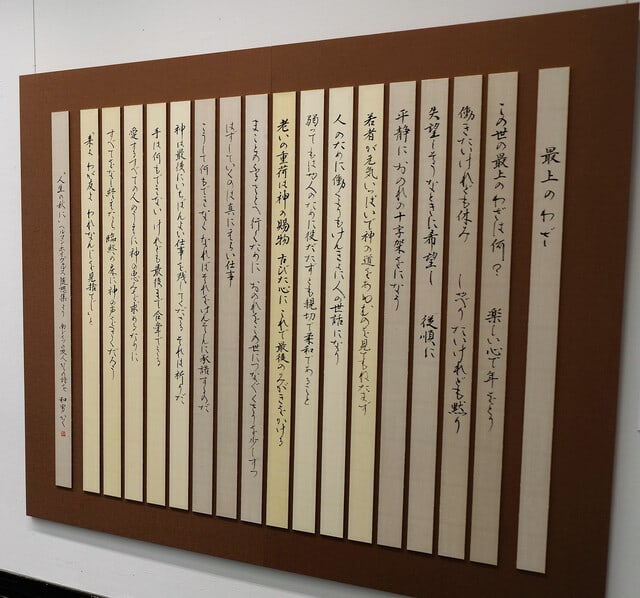 最上のわざ
この世の最上のわざは何? 楽しい心で年をとり
働きたいけれども休み しゃべりたいけれども黙り
失望しそうなときに希望し 従順に
平静に おのれの十字架をになう
若者が元気いっぱいで神の道をあゆむのを見てもねたまず
人のために働くよりもけんきょに人の世話になり
弱ってもはや人のために役だたずとも親切で柔和であること
老いの重荷は神の賜物 古びた心に これで最後のみがきをかける
まことのふるさとへ行くために おのれをこの世につなぐくさりを少しずつ
はずしていくのは真にえらい仕事
こうして何もできなくなればそれをけんそんに承諾するのだ
神は最後にいちばんよい仕事を残してくださる それは祈りだ
手は何もできない けれども最後まで合掌できる
愛するすべての人のうえに 神の恵みを求めるために
すべてをなし終えたら 臨終の床に神の声をきくだろう
来よ わが友よ われなんじを見捨てじと
"人生の秋に"ヘルマン・ホイヴェルス随想集より